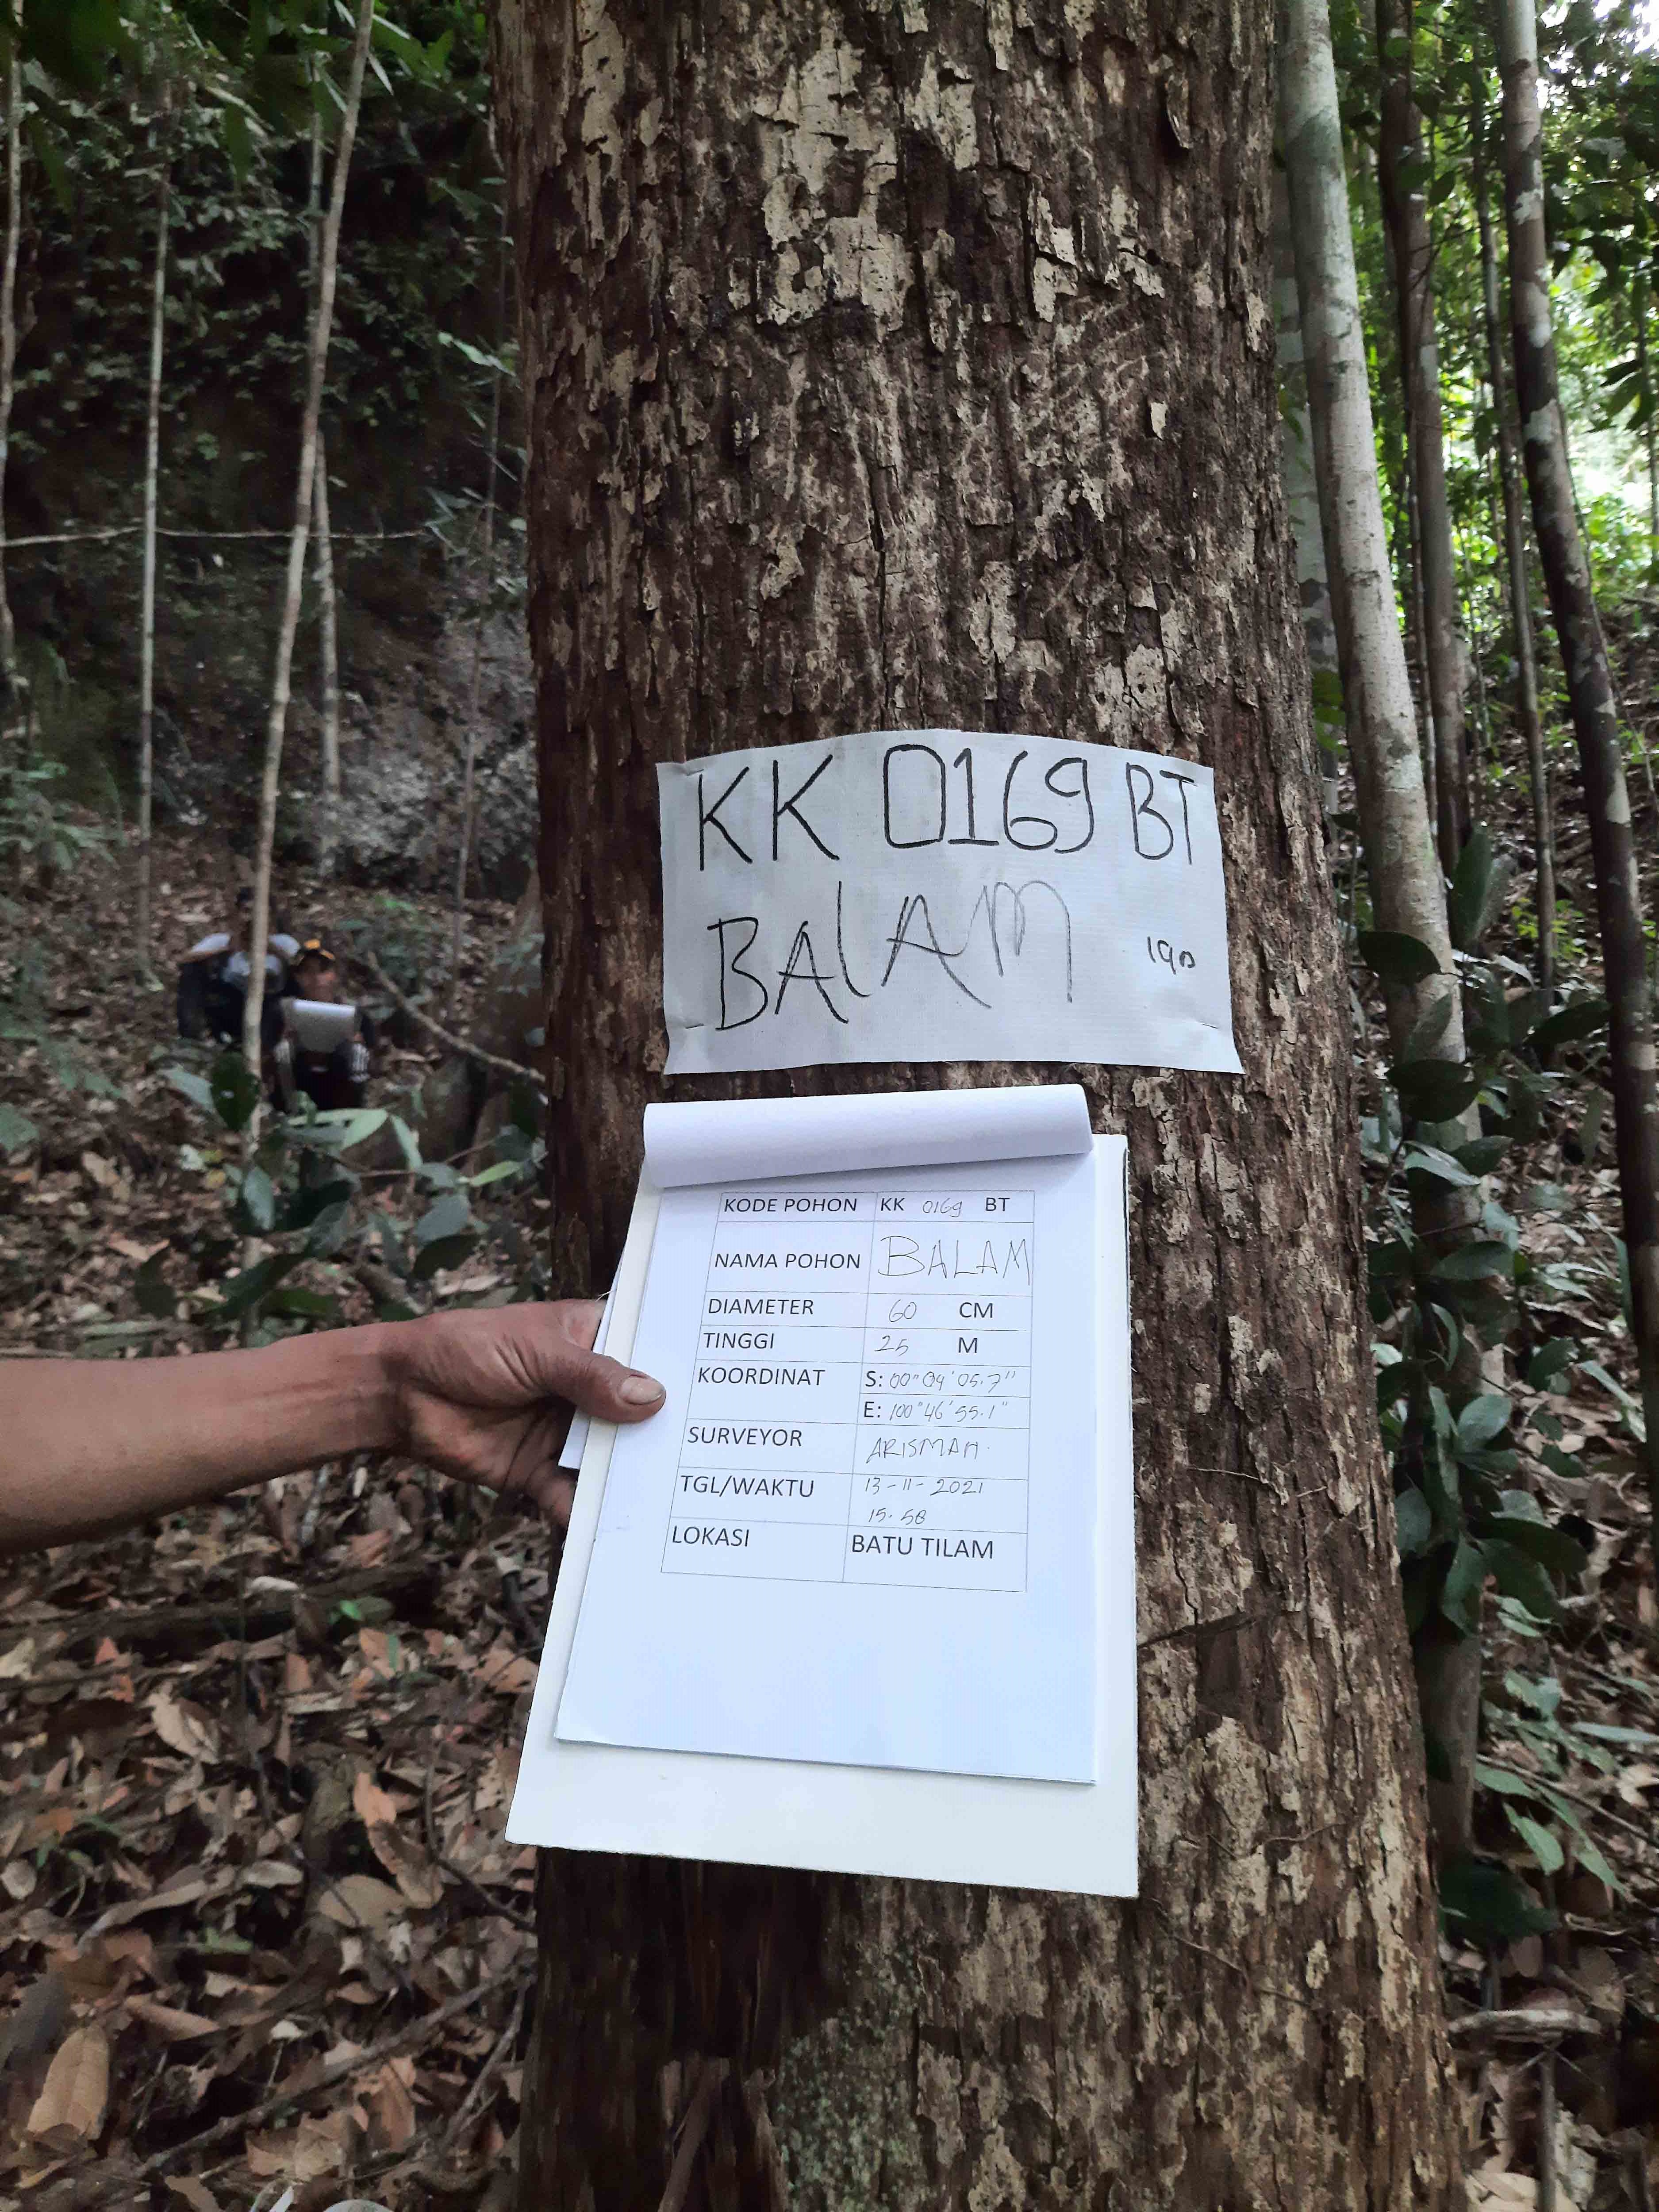 KK 0169 BT
BALAM 190
KODE POHON KK 0169 BT
NAMA POHON BALAM
DIAMETER 60 CM
TINGGI 25 M
KOORDINAT S: 00° 04' 05.7"
E: 100° 46' 55.1"
SURVEYOR ARISMAN
TGL/WAKTU 13-11-2021
15.58
LOKASI BATU TILAM